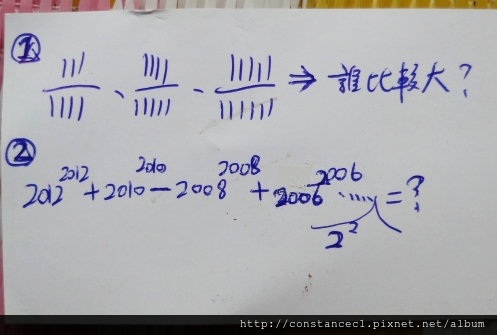 ① 111/1111、1111/11111、11111/111111 ⇒ 誰比較大?
② 2012^2012 + 2010^2010 - 2008^2008 + 2006^2006 ..... 2^2 = ?
http://constancecl.pixnet.net/album